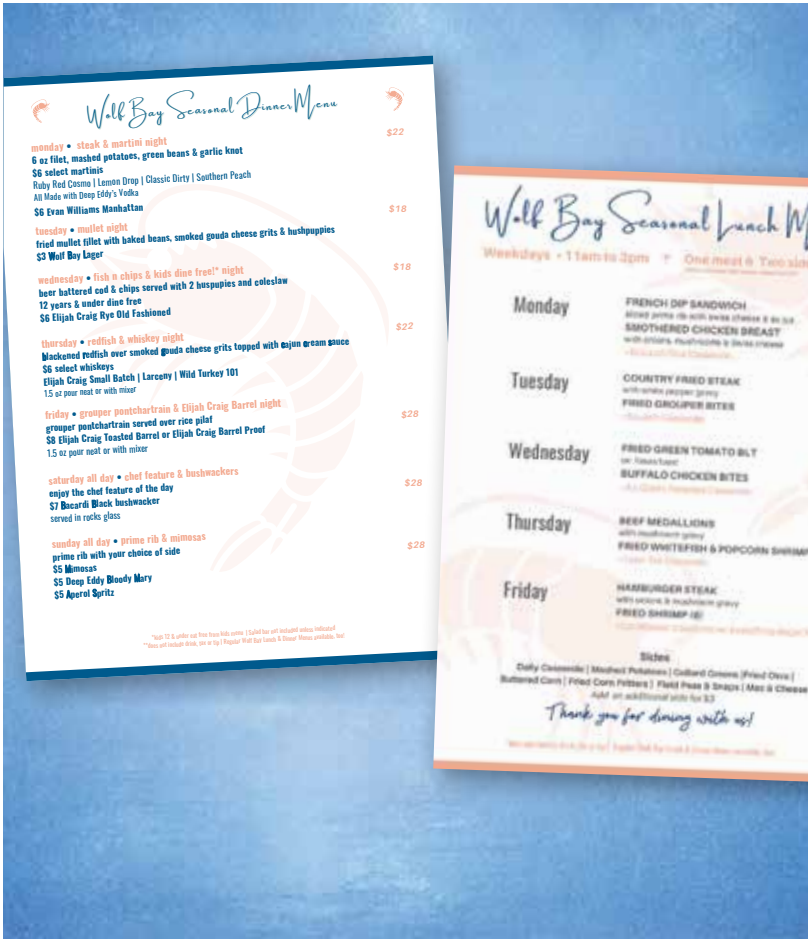 Wolf Bay Seasonal Dinner Menu
monday • steak & martini night
$22
6 oz filet, mashed potatoes, green beans & garlic knot
$6 select martinis
Ruby Red Cosmo | Lemon Drop | Classic Dirty | Southern Peach
All Made with Deep Eddy's Vodka
$6 Evan Williams Manhattan
tuesday • mullet night
$18
fried mullet fillet with baked beans, smoked gouda cheese grits & hushpuppies
$3 Wolf Bay Lager
wednesday • fish n chips & kids dine free!* night
$18
beer battered cod & chips served with 2 huspupies and coleslaw
12 years & under dine free
$6 Elijah Craig Rye Old Fashioned
thursday • redfish & whiskey night
$22
blackened redfish over smoked gouda cheese grits topped with cajun cream sauce
$6 select whiskeys
Elijah Craig Small Batch | Larceny | Wild Turkey 101
1.5 oz pour neat or with mixer
friday • grouper pontchartrain & Elijah Craig Barrel night
$28
grouper pontchartrain served over rice pilaf
$8 Elijah Craig Toasted Barrel or Elijah Craig Barrel Proof
1.5 oz pour neat or with mixer
saturday all day • chef feature & bushwackers
$28
enjoy the chef feature of the day
$7 Bacardi Black bushwacker
served in rocks glass
sunday all day • prime rib & mimosas
$28
prime rib with your choice of side
$5 Mimosas
$5 Deep Eddy Bloody Mary
$5 Aperol Spritz
Wolf Bay Seasonal Lunch M
Weekdays • 11am to 3pm
One meat & Two sid
Monday
FRENCH DIP SANDWICH
SMOTHERED CHICKEN BREAST
with onions, mushrooms & swiss cheese
Tuesday
COUNTRY FRIED STEAK
with white pepper gravy
FRIED GROUPER BITES
Wednesday
FRIED GREEN TOMATO BLT
BUFFALO CHICKEN BITES
Thursday
BEEF MEDALLIONS
with mushroom gravy
FRIED WHITEFISH & POPCORN SHRIMP
Friday
HAMBURGER STEAK
with onions & mushroom gravy
FRIED SHRIMP (6)
Sides
Daily Casserole | Mashed Potatoes | Collard Greens | Fried Okra |
Buttered Corn | Fried Corn Fritters | Field Peas & Snaps | Mac & Cheese
Add an additional side for $3
Thank you for dining with us!